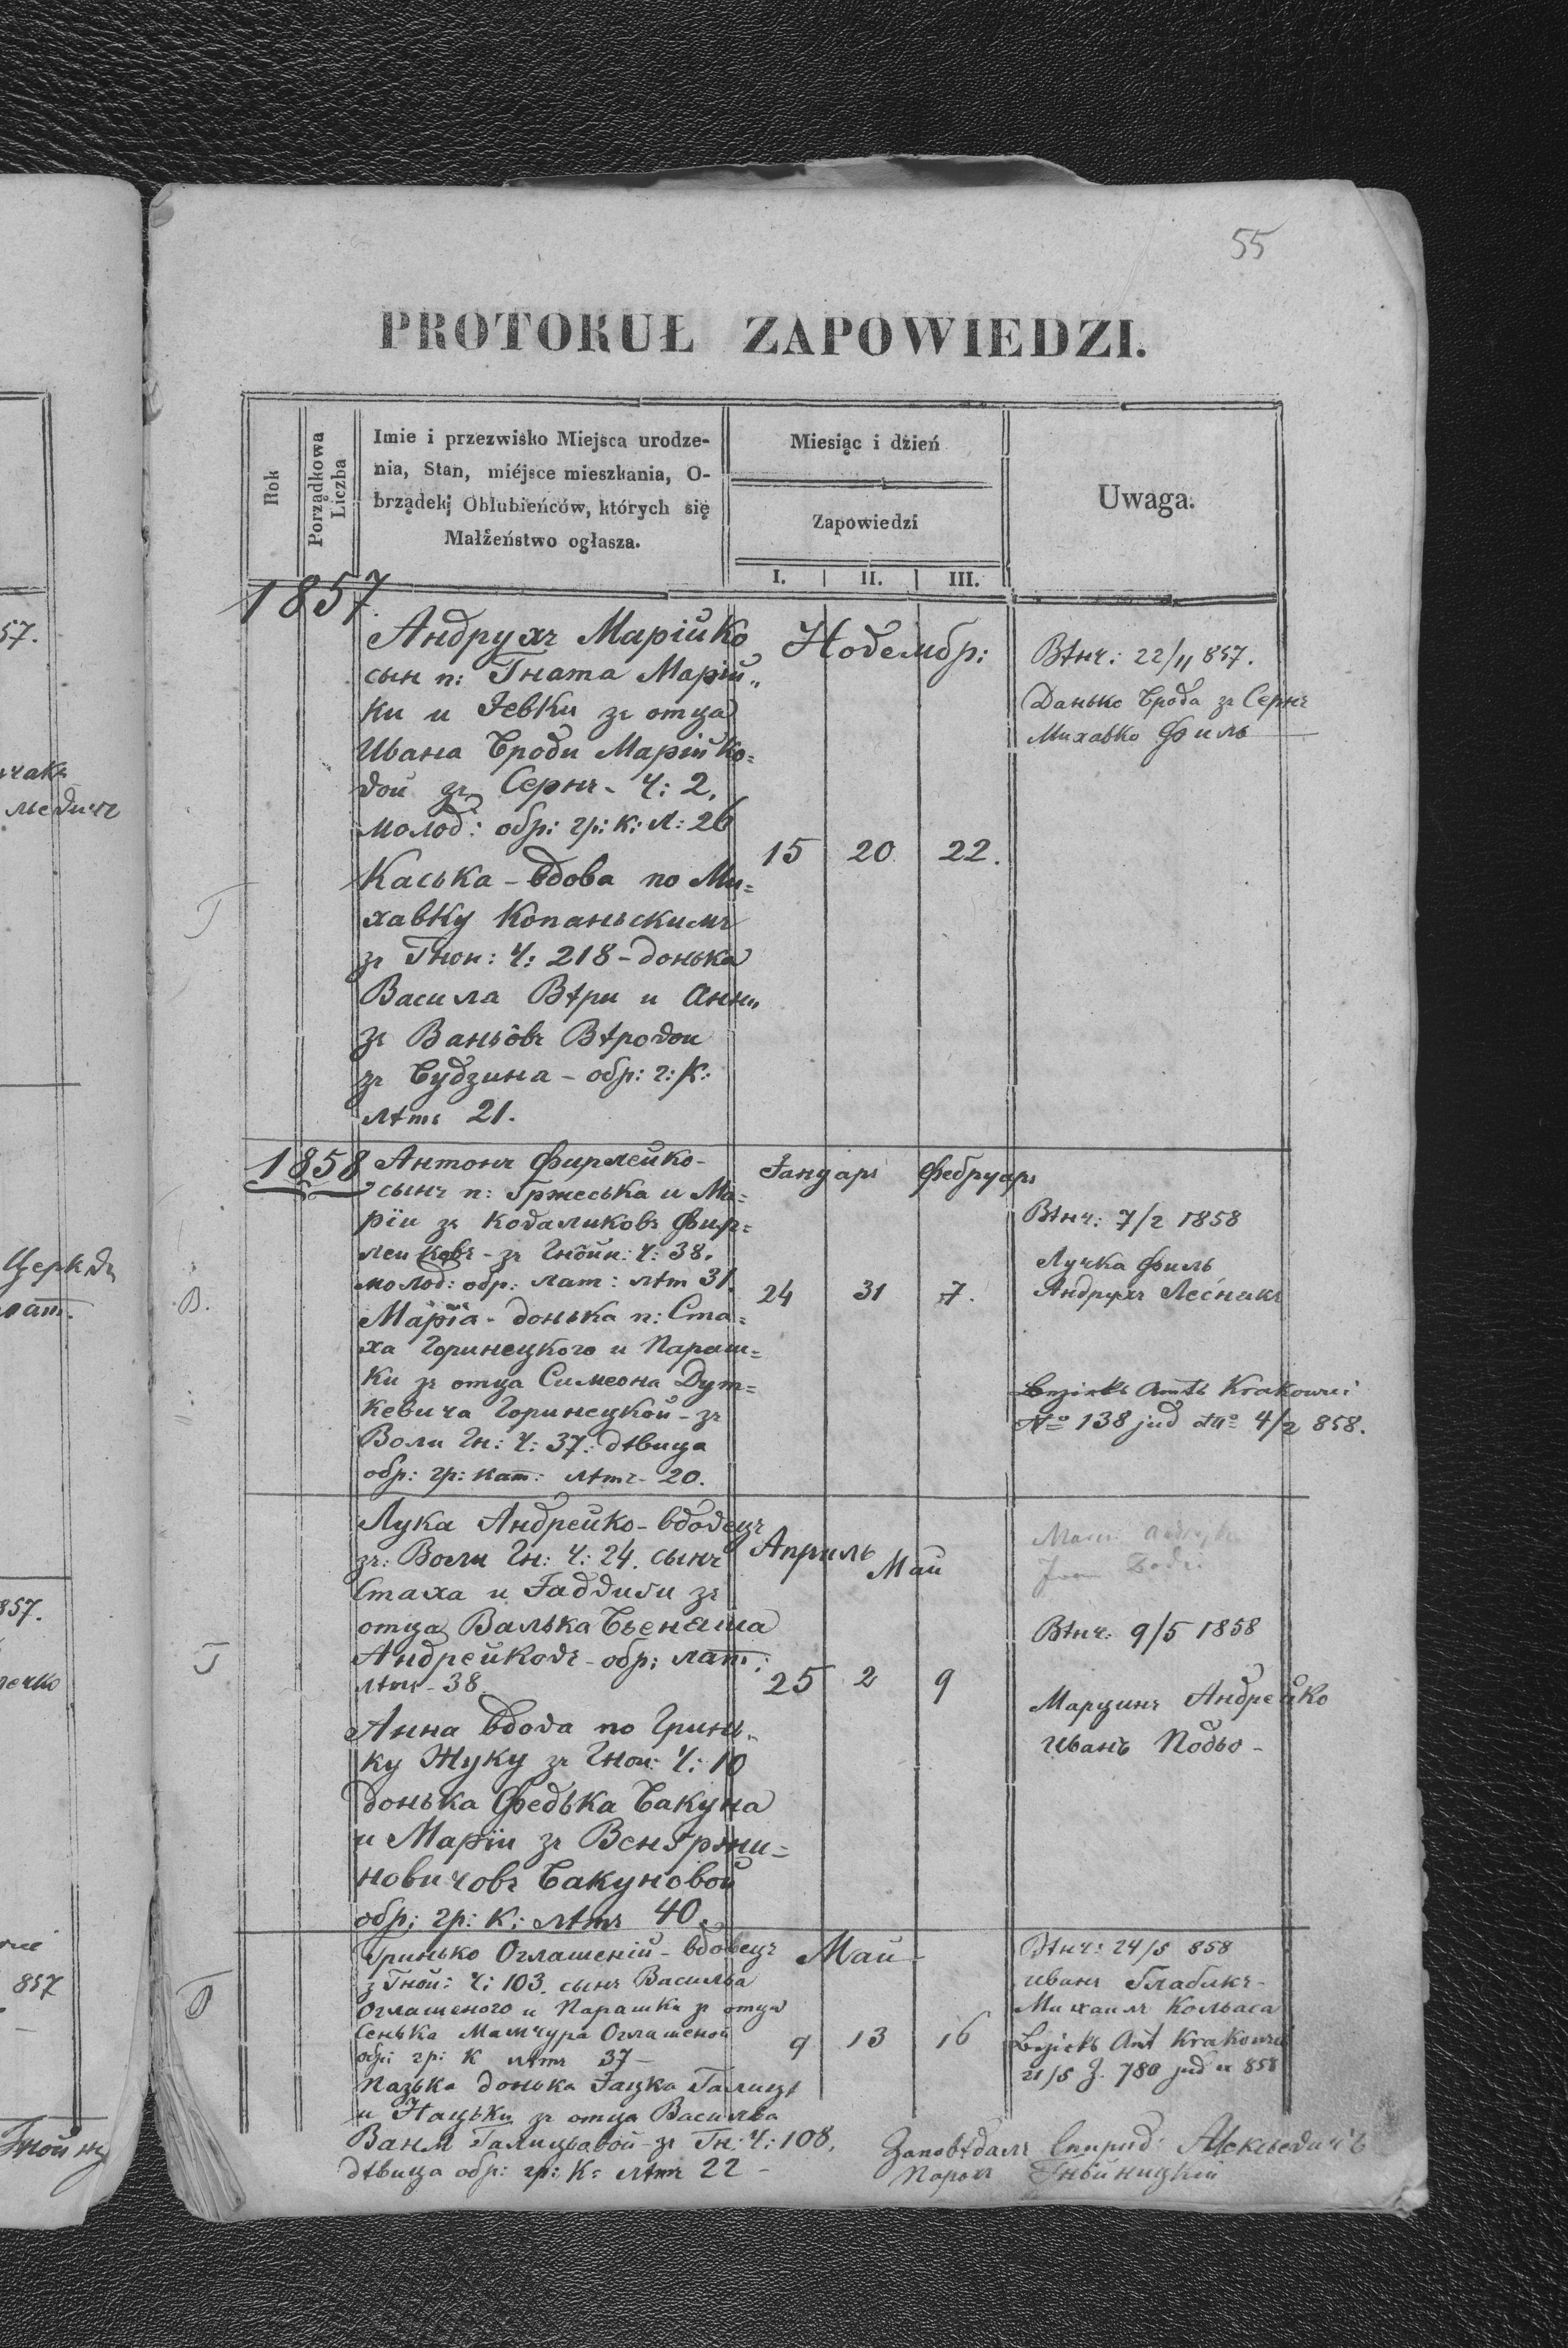 55
PROTOKUŁ ZAPOWIEDZI.
Rok
Porządkowa Liczba
Imie i przezwisko Miejsca urodze-
nia, Stan, miéjsce mieszkania, O-
brządek; Oblubieńców, których się
Małżeństwo ogłasza.
Miesiąc i dzień
Zapowiedzi
I. II. III.
Uwaga.
1857.
Андрухъ Марійко
сын п: Гната Марій„
ки и Іевки зъ отца
Ивана Броди Марійко=
вой зъ Сернъ - Ч: 2.
молод: обр: гр: к: л: 26
Каська - вдова по Ми=
хавку Копаньскимъ
зъ Гнои: Ч: 218 - донька
Васила Вѣтри и Анн„
зъ Ваньôвъ Вѣтровои
зъ Будзина - обр: г: к:
лѣтъ 21.
Новембр:
15 20 22.
Вѣнч: 22/11 857.
Данько Брода зъ Сернъ
Михавко Филь
Т
1858
Антонъ Фирлейко-
сынъ п: Гржеська и Ма=
рїи зъ Коваликовъ Фир=
лейковъ - зъ Гнôйн: Ч: 38.
молод: обр: лат: лѣт 31.
Марїа - донька п: Ста=
ха Горинецкого и Параш=
ки зъ отца Симеона Дут=
кевича Горинецкой - зъ
Воли Гн: Ч: 37: дѣвица
обр: гр: кат: лѣтъ - 20.
Іануарь Февруаръ
24 31 7.
Вѣнч: 7/2 1858
Лучка Филь
Андрухъ Лесникъ
Bezirks Amts Krakowci
No 138 jud dto 4/2 858.
В.
Лука Андрейко - вдовецъ
зъ: Воли Гн: Ч: 24. сынъ
Стаха и Гаддиви зъ
отца Валька Бьенаша
Андрейковъ - обр: лат:
лѣтъ - 38.
Анна вдова по Гринь„
ку Жуку зъ Гнои: Ч: 10
донька Федька Бакуна
и Марїи зъ Венгржи=
новичовъ Бакуновой
обр: гр: к: лѣтъ 40.
Априль Май
25 2 9
Вѣнч: 9/5 1858
Марцинъ Андрейко
Иванъ Подьо -
Т
Гринько Оглашеній - вдовецъ
з Гной: Ч: 103. сынъ Василья
Оглашеного и Парашка зъ отца
Сенька Мамчура Оглашеной
обр: гр: К лѣтъ 37 -
Пазька донька Іацка Галицы
и Нацьки зъ отца Василья
Ванм Галицьовой - зъ Гн: Ч: 108.
дѣвица обр: гр: К: лѣтъ 22 -
Май -
9 13 16
Вѣнч: 24/5 858
Иванъ Глабикъ -
Михаилъ Кольаса
Bezirks Amt Krakowci
21/5 Z. 780 jud ex 858
Заповѣдалъ Спирид: Алексьевичъ
Парохъ Гнôйницкій